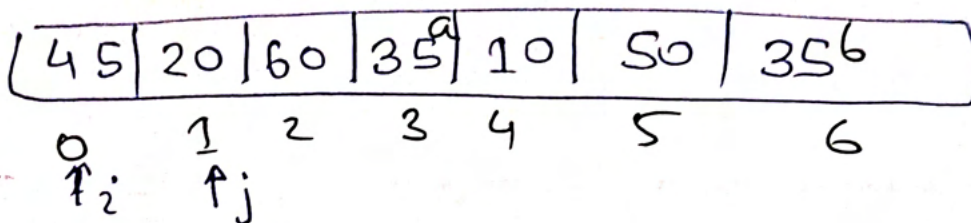 45 20 60 35a 10 50 35b
0 1 2 3 4 5 6
↑i ↑j